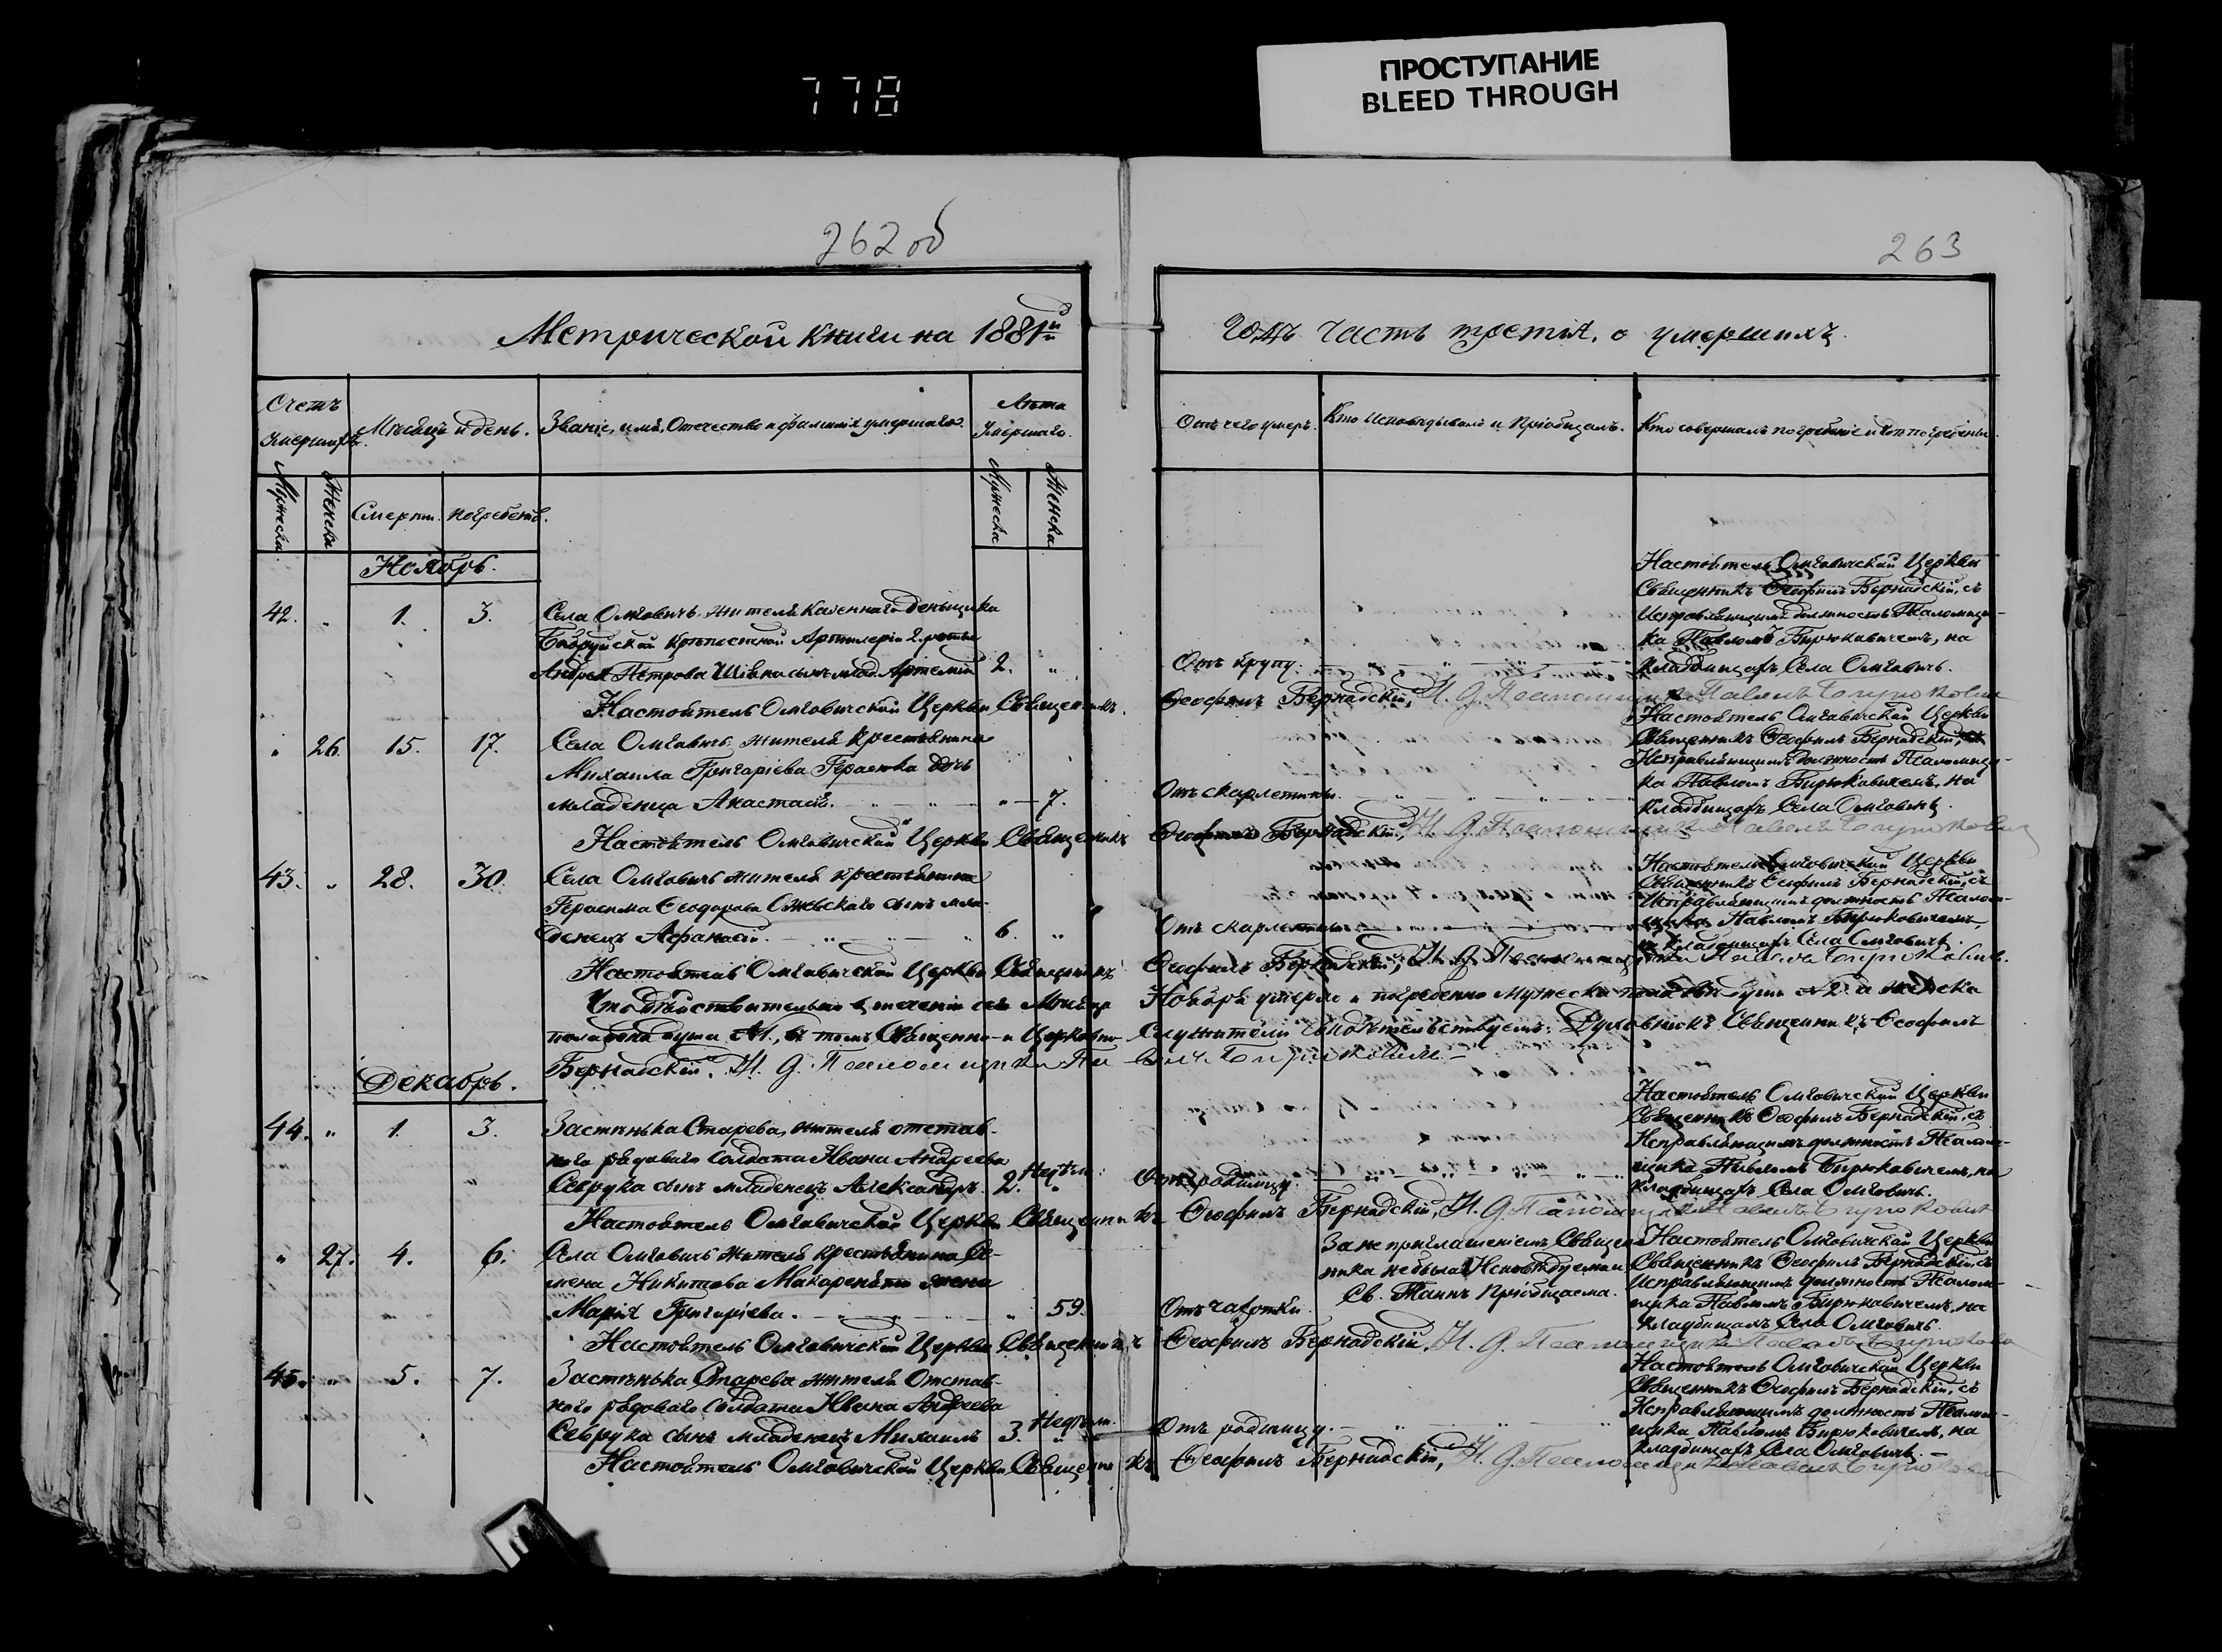 778
ПРОСТУПАНИЕ
BLEED THROUGH
262 об
263
Метрической книги на 1881й
годъ часть третія, о умершихъ.
Счетъ умершихъ.
Мѣсяцъ и день.
Званіе, имя, Отечество и фамилія умершаго.
Лѣта умершаго.
Отъ чего умеръ.
Кто исповѣдывалъ и пріобщалъ.
Кто совершалъ погребеніе и гдѣ погребены.
Мужеска.
Женска
Смерти.
погребенія.
Мужеска
Женска
Ноябрь.
42. " 1. 3.
Села Омговичъ жителя казеннаго деньщика
Бобруйской крѣпостной Артилеріи 2. роты
Андрея Петрова сынъ млад. Артемій 2. "
Отъ крупу.
Настоятель Омговичской Церкви
Священникъ Ѳеофилъ Бернадскій, съ
Исправляющимъ должность Псаломщи-
ка Павломъ Бирюковичемъ, на
кладбищахъ Села Омговичъ.
Настоятель Омговичской Церкви Священникъ Ѳеофилъ Бернадскій, И. д. Псаломщика Павелъ Бирюковичъ
" 26. 15. 17.
Села Омговичъ жителя крестьянина
Михаила Григоріева Герасюка дочь
младенца Анастасія. " 7.
Отъ скарлетины.
Настоятель Омговичской Церкви
Священникъ Ѳеофилъ Бернадскій, съ
Исправляющимъ должность Псаломщи-
ка Павломъ Бирюковичемъ, на
кладбищахъ Села Омговичъ.
Настоятель Омговичской Церкви Священникъ Ѳеофилъ Бернадскій, И. д. Псаломщика Павелъ Бирюковичъ
43. " 28. 30.
Села Омговичъ жителя крестьянина
Герасима Ѳеодорова сынъ мла-
денецъ Афанасій. 6. "
Отъ скарлетины
Настоятель Омговичской Церкви
Священникъ Ѳеофилъ Бернадскій, съ
Исправляющимъ должность Псалом-
щика Павломъ Бирюковичемъ,
на кладбищахъ Села Омговичъ.
Настоятель Омговичской Церкви Священникъ Ѳеофилъ Бернадскій, И. д. Псаломщика Павелъ Бирюковичъ.
Что дѣйствительно въ теченіи сего Мѣсяца Ноября умерло и погребенно мужеска пола двѣ души №2. а женска
пола одна душа №1., въ томъ Священно- и Церковно- Служители свидѣтельствуемъ: Духовникъ Священникъ Ѳеофилъ
Бернадскій. И. д. Псаломщика Павелъ Бирюковичъ.
Декабрь.
44. " 1. 3.
Застѣнька Старева, жителя отстав-
наго рядоваго Солдата Ивана Андреева
Севрука сынъ младенецъ Александръ. 2. Недѣли. "
Отъ родимцу.
Настоятель Омговичской Церкви
Священникъ Ѳеофилъ Бернадскій, съ
Исправляющимъ должность Псалом-
щика Павломъ Бирюковичемъ, на
кладбищахъ Села Омговичъ.
Настоятель Омговичской Церкви Священникъ Ѳеофилъ Бернадскій, И. д. Псаломщика Павелъ Бирюковичъ
" 27. 4. 6.
Села Омговичъ жителя крестьянина Се-
мена Никитова жена
Марія Григоріева. " 59.
Отъ чахотки.
За не приглашеніемъ Священ-
ника не была Исповѣдуема и
Св. Таинъ Пріобщаема.
Настоятель Омговичской Церкви
Священникъ Ѳеофилъ Бернадскій, съ
Исправляющимъ должность Псалом-
щика Павломъ Бирюковичемъ, на
кладбищахъ Села Омговичъ.
Настоятель Омговичской Церкви Священникъ Ѳеофилъ Бернадскій, И. д. Псаломщика Павелъ Бирюковичъ
45. " 5. 7.
Застѣнька Старева жителя Отстав-
ного рядоваго Солдата Ивана Андреева
Севрука сынъ младенецъ Михаилъ 3. Недѣли. "
Отъ родимцу.
Настоятель Омговичской Церкви
Священникъ Ѳеофилъ Бернадскій, съ
Исправляющимъ должность Псалом-
щика Павломъ Бирюковичемъ, на
кладбищахъ Села Омговичъ.
Настоятель Омговичской Церкви Священникъ Ѳеофилъ Бернадскій, И. д. Псаломщика Павелъ Бирюковичъ